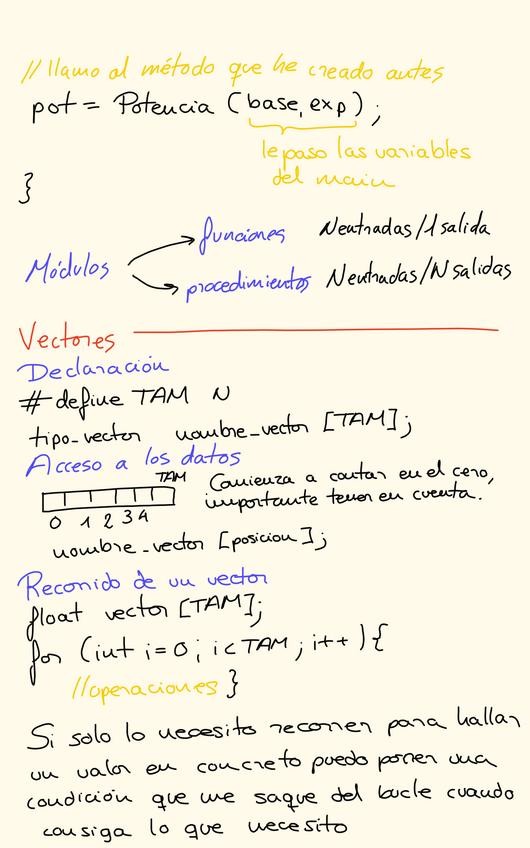 // llamo al método que he creado antes
pot = Potencia (base, exp);
le paso las variables
del main
}
Módulos
funciones N entradas/1 salida
procedimientos N entradas/N salidas
Vectores
Declaración
# define TAM N
tipo_vector nombre_vector [TAM];
Acceso a los datos
TAM
0 1 2 3 4
Comienza a contar en el cero,
importante tener en cuenta.
nombre_vector [posicion];
Recorrido de un vector
float vector [TAM];
for (int i=0; i<TAM; i++){
//operaciones }
Si solo lo necesito recorrer para hallar
un valor en concreto puedo poner una
condición que me saque del bucle cuando
consiga lo que necesito